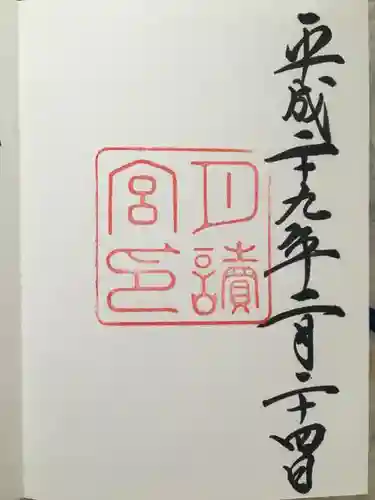 平成二十九年二月二十四日
月讀
宮印